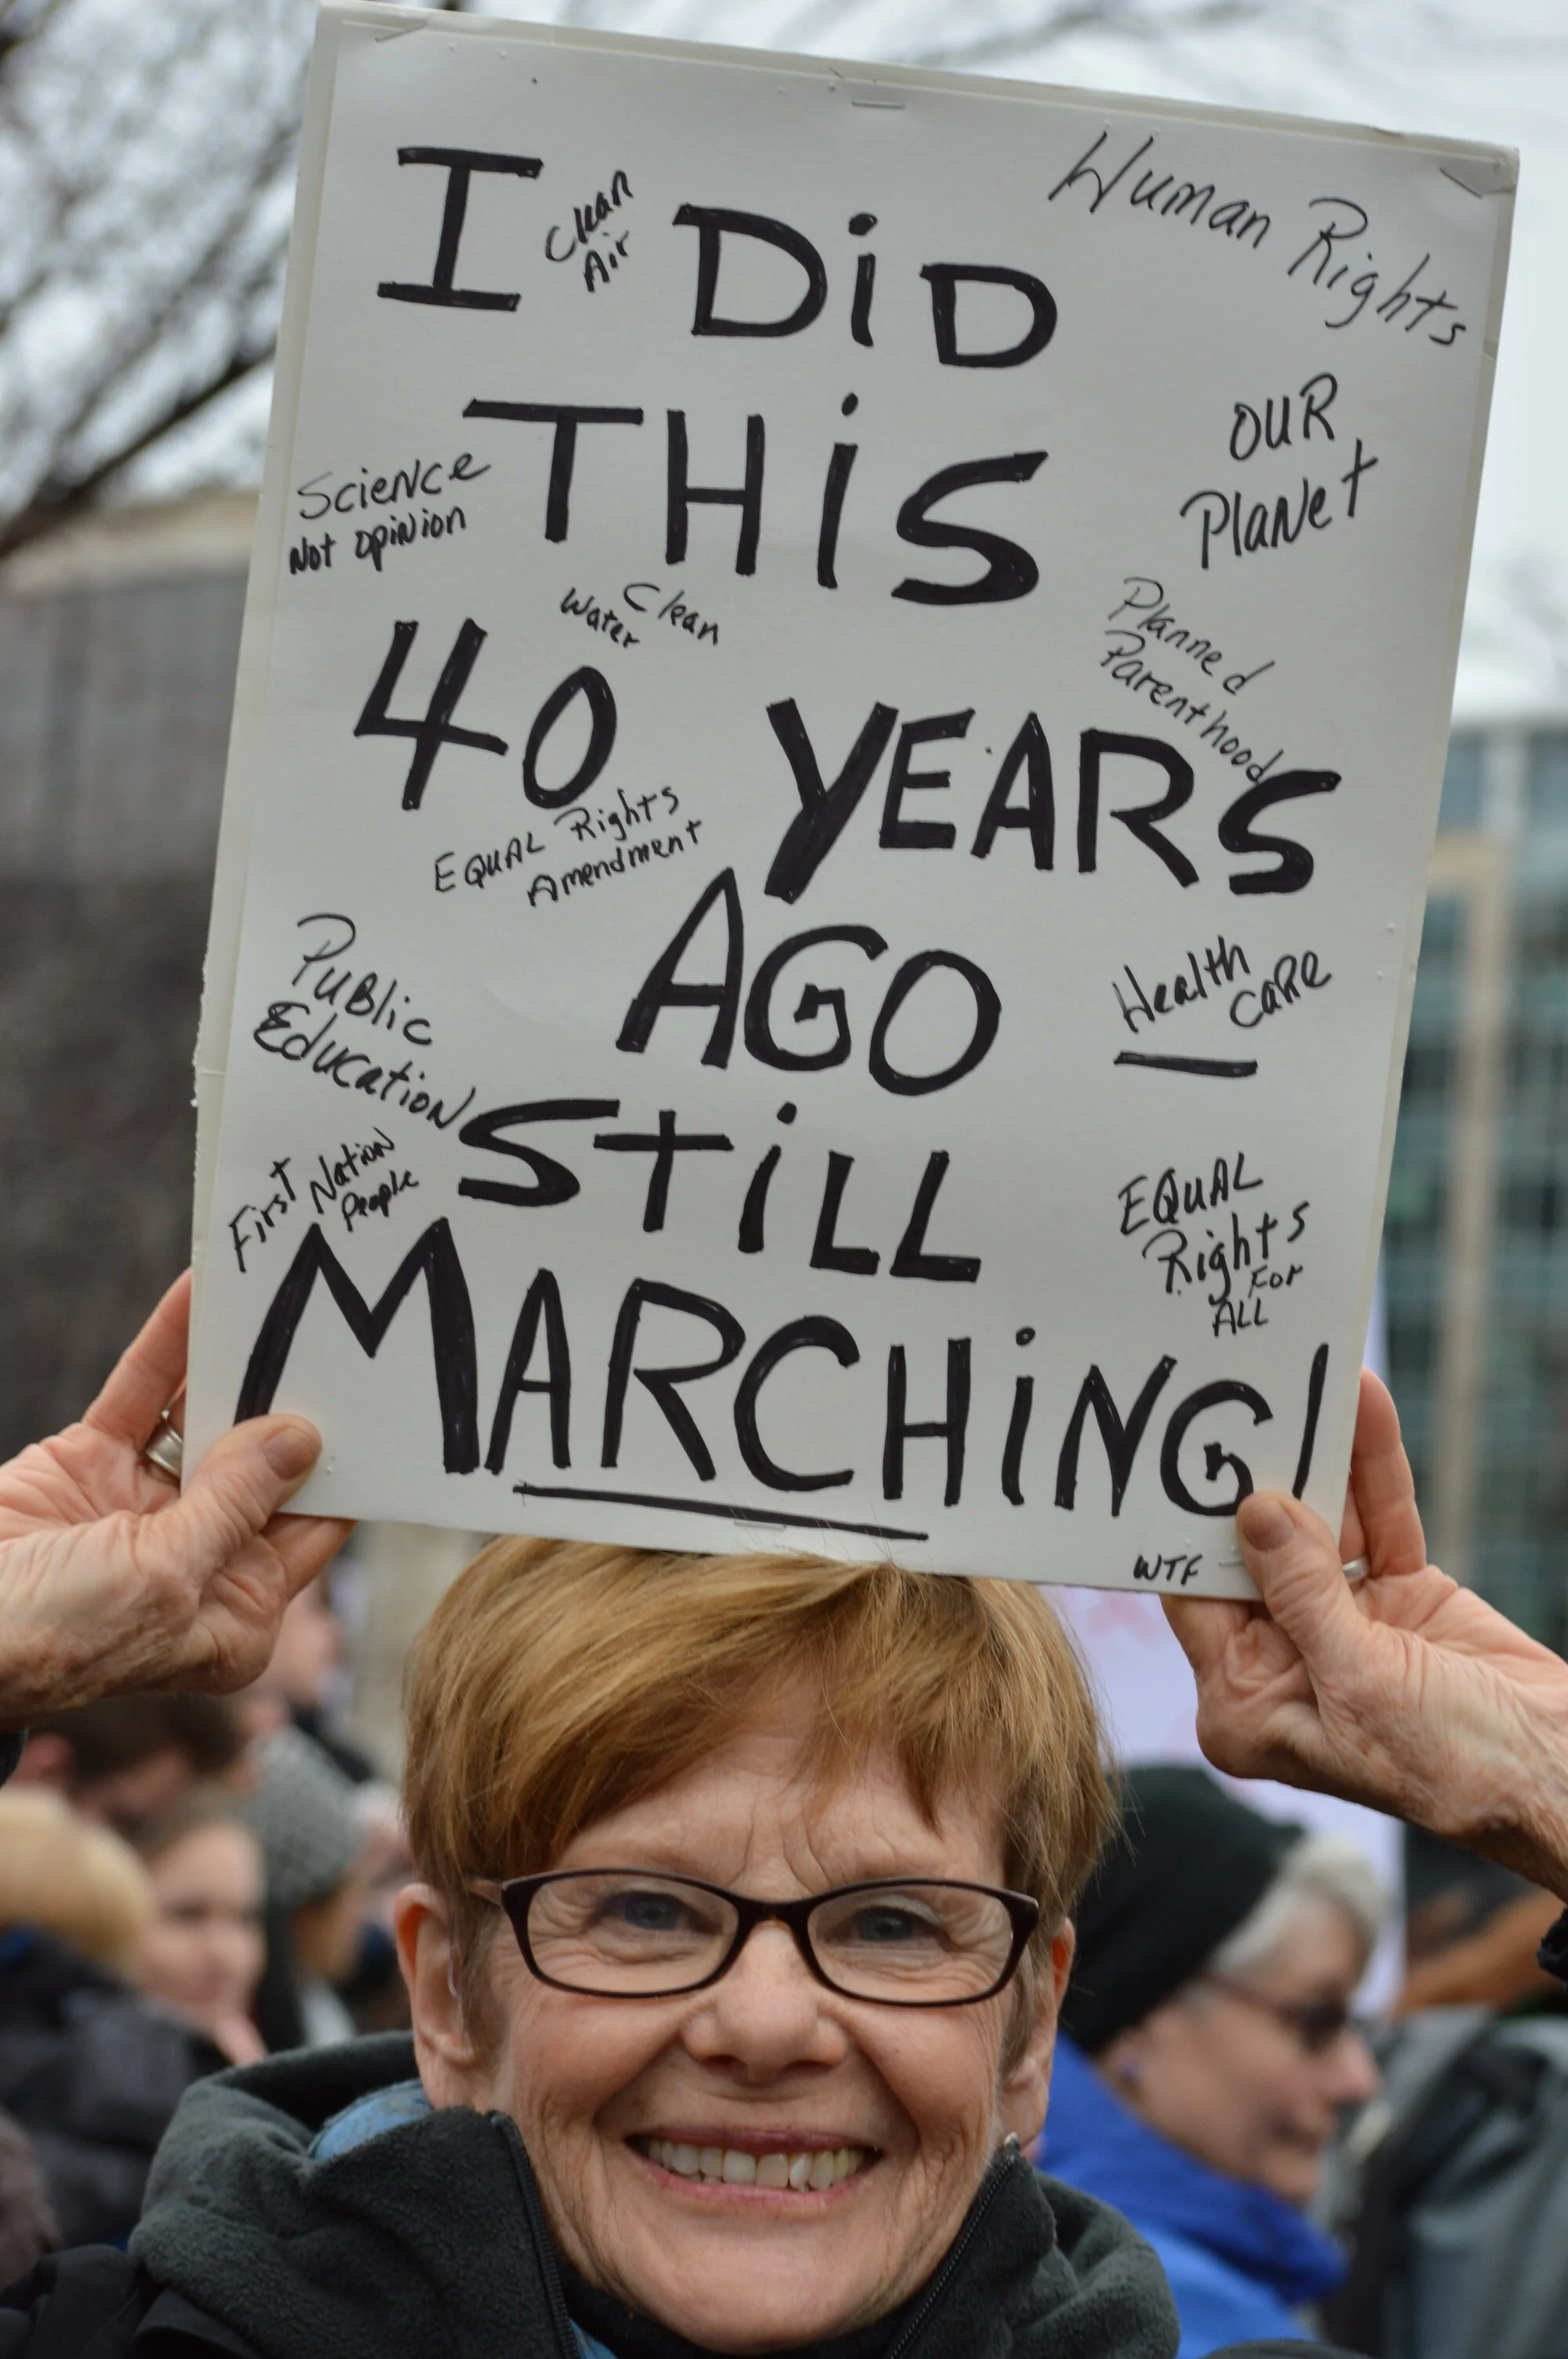 I DiD
Clean
Air
Human Rights
THiS
OUR
PlaNet
ScieNce
Not opiNion
Clean
Water
Planned
Parenthood
40 YEARS
EQUAL Rights
Amendment
AGO
Health
CaRe
PuBlic
EducatioN
STiLL
First Nation
People
EQUAL
Rights
For
ALL
MARCHiNG!
WTF